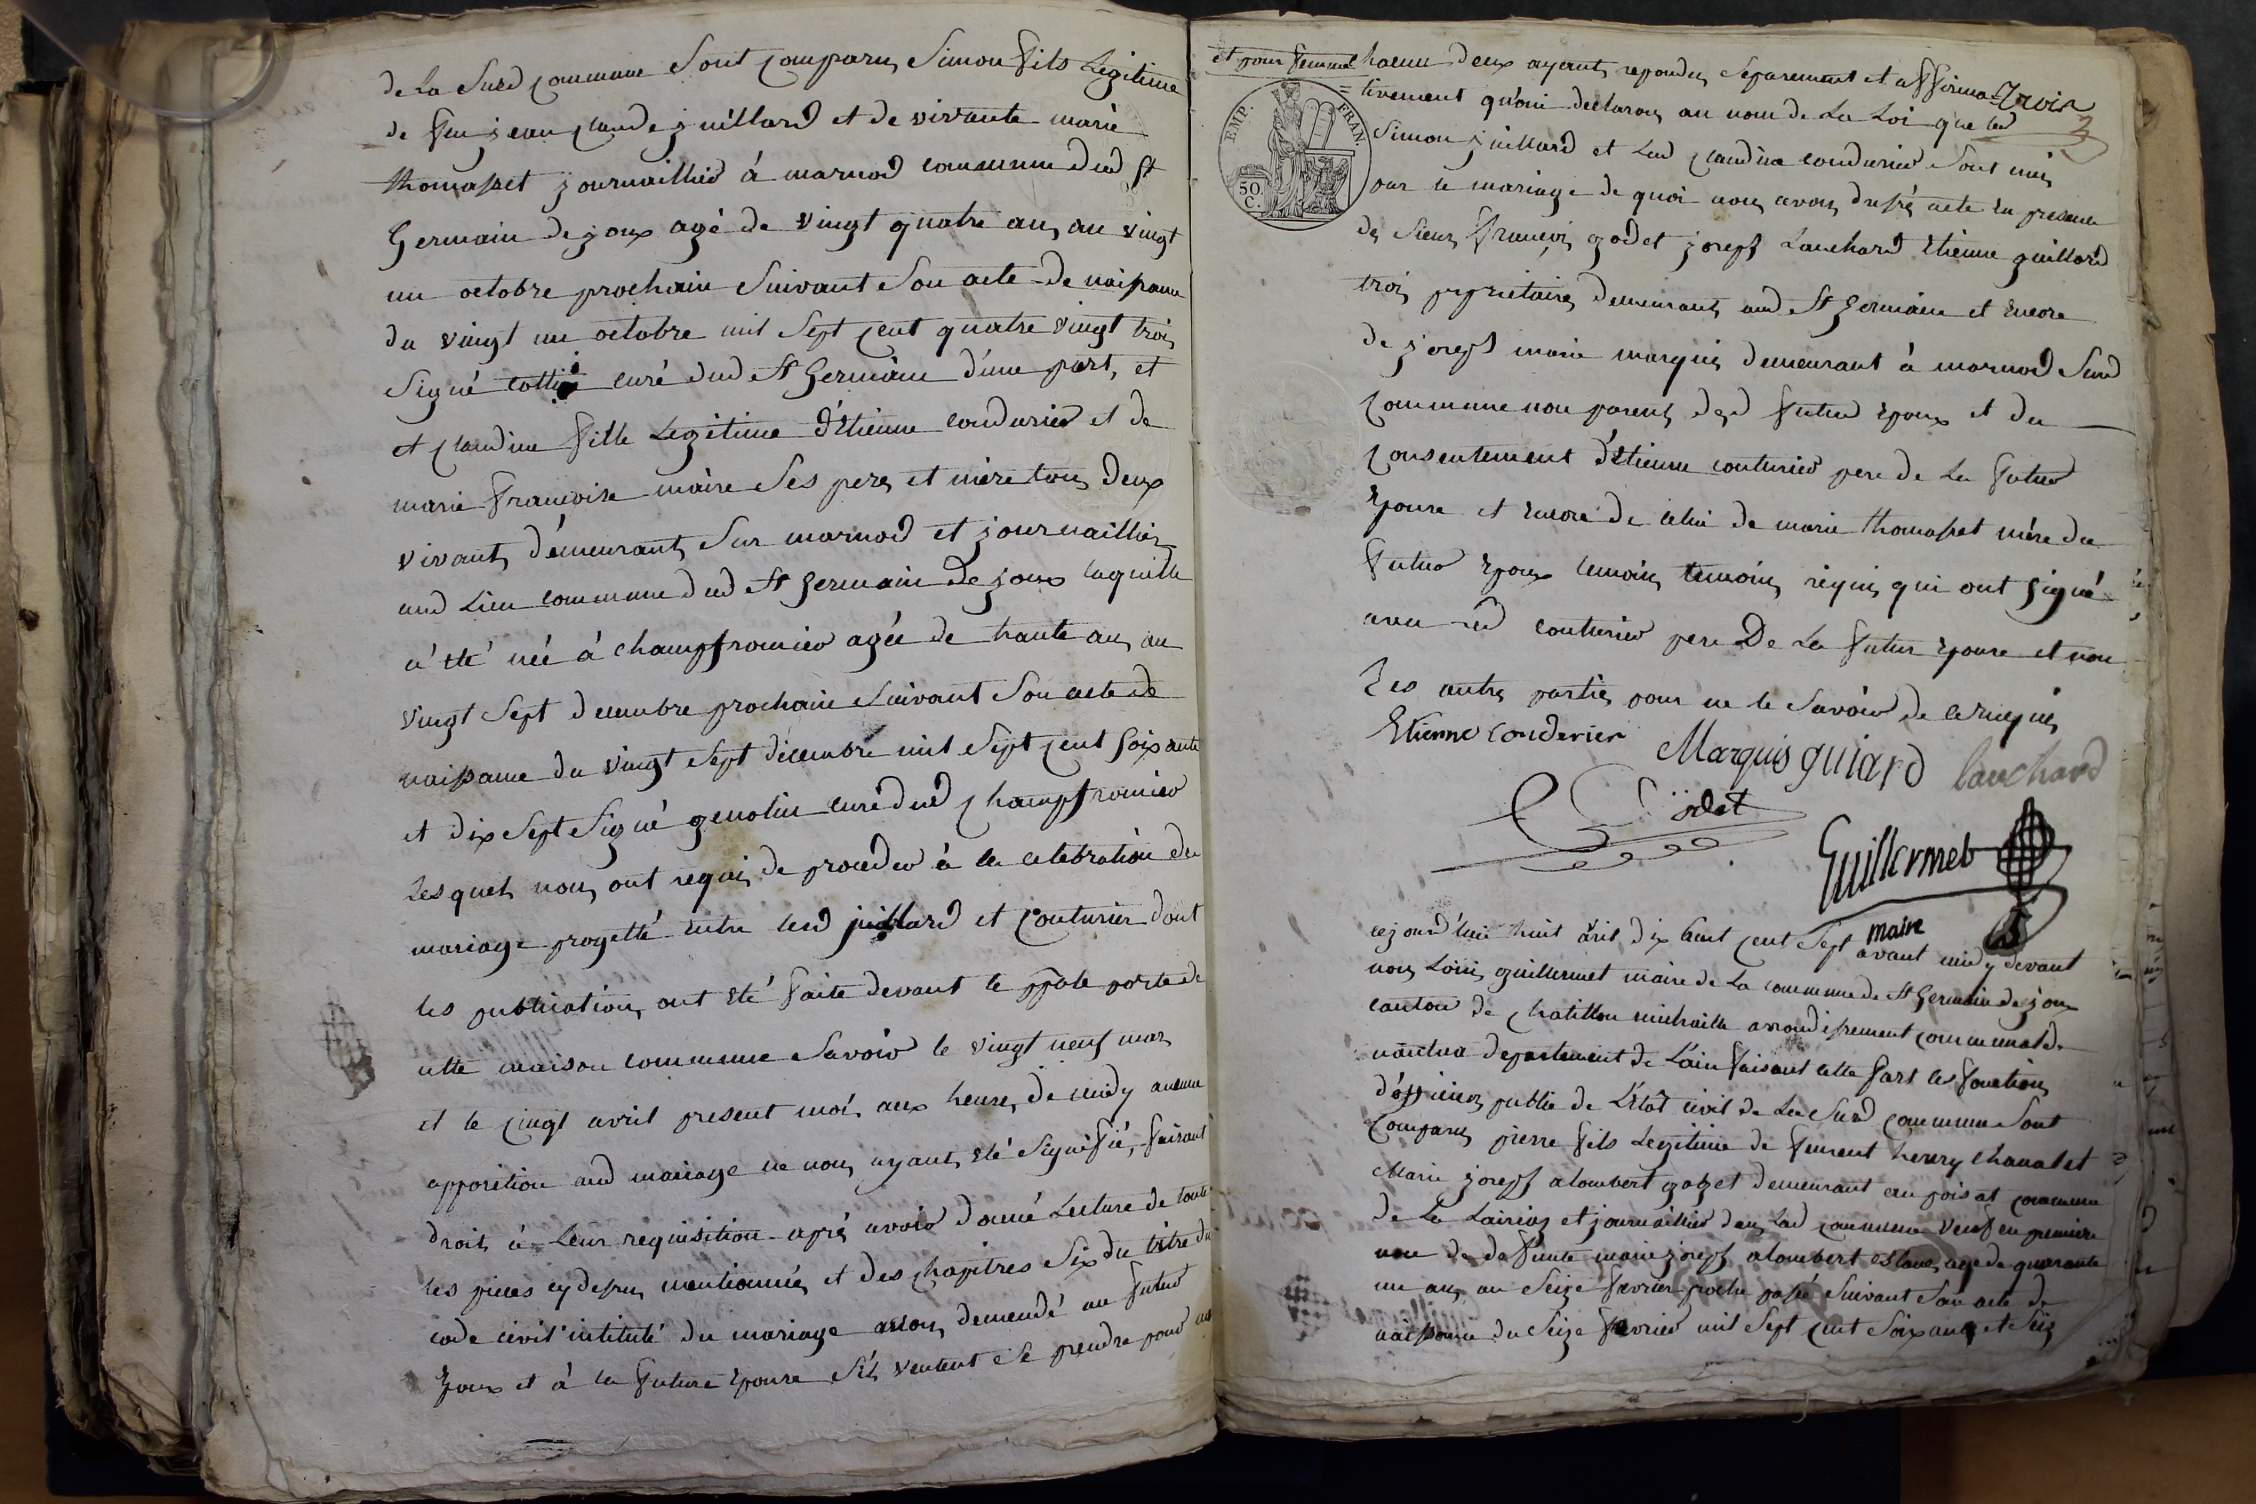 de la Susd commune Sont comparus Simon fils Legitime
de feu jean claude juillard et de vivante marie
thomasset journaillier à marnod commune dud St
Germain de joux agé de vingt quatre ans au vingt
un octobre prochain Suivant Son acte de naissance
du vingt un octobre mil Sept cent quatre vingt trois
Signé curé dud St Germain d'une part, et
et claudine fille Legitime d'Etienne condurier et de
marie francoise maire Ses pere et mère tous deux
vivants démeurants Sur marnod et journailliers
aud Lieu commune dud St Germain de joux laquelle
a été née à champfromier agée de trante ans au
vingt Sept decembre prochain Suivant Son acte de
naissance du vingt Sept décembre mil Sept cent Soixante
et dix Sept Signé genolin curé dud champfromier
Lesquels nous ont requis de proceder à la celebration du
mariage progetté entre lesd juillard et couturier dont
les publications ont été faite devant la pple porte de
cette maison commune Savoir le vingt neuf mars
et le cinq avril present mois aux heures de midy aucune
opposition aud mariage ne nous ayant été Signifié, faisant
droit à Leur requisition aprés avoir donné Lecture de toute
les pieces cy dessus mentionnés et des chapitres Six du titre du
code civil intitulé du mariage avons demendé au futur
Epoux et à la future Epouse S'ils veulent Se prendre pour mari
et pour femme chacun deux ayant repondu Separement et affirma=
Trois
=tivement qu'oui declarons au nom de La Loi que led
Simon juillard et Lad claudine condurier Sont unis
par le mariage de quoi nous avons dressé acte En presence
des Sieurs François godet joseph Lauchard Etienne guillard
trois proprietaires demeurants aud St Germain et Encore
de joseph marie marquis demeurant à marnod Susd
commune non parents desd futur Epoux et du
consentement d'Etienne couturier pere de La future
Epouse et Encore de celui de marie thomasset mère du
futur Epoux temoins temoins requis qui ont signé
avec led couturier pere De La futur Epouse et non
Les autres parties pour ne le Savoir de ce requis
Etienne conderier Marquis guiard Lauchard
Godet
Guillermet
maire
cejourd'hui huit avril dix huit cent Sept avant midy devant
nous Loüis guillermet maire de La commune de St Germain de joux
canton de chatillon michaille arrondissement communal de
nantua departement de L'ain faisant cette part les fonctions
d'officier public de L'état civil de La Susd commune Sont
comparus pierre fils Legitime de
Marie joseph alombert gozet demeurant au poisat commune
de La et journaillier dans Lad commune veuf en premiere
noce de defunte marie joseph alombert agé de quarante
un ans au Seize fevrier proche passé Suivant Son acte de
naissance du Seize fevrier mil Sept cent Soixante et Six
EMP. FRAN.
50 C.